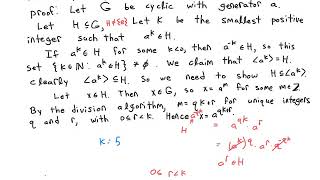 proof: Let G be cyclic with generator a.
Let H ≤ G, H≠{e} Let K be the smallest positive
integer such that a^k ∈ H.
If a^k ∈ H for some k<0, then a^-k ∈ H, so this
set {k∈N: a^k∈H} ≠ ∅. We claim that <a^k> = H.
Clearly <a^k> ≤ H. So we need to show H ≤ <a^k>.
Let x ∈ H. Then x∈G, so x = a^m for some m∈Z.
By the division algorithm, m = qk+r for unique integers
q and r, with 0≤r<k. Hence a^m = x = a^qk+r
H = a^qk · a^r
K: 5 = (a^k)^q · a^r
a^r ∈ H
0≤ r<k